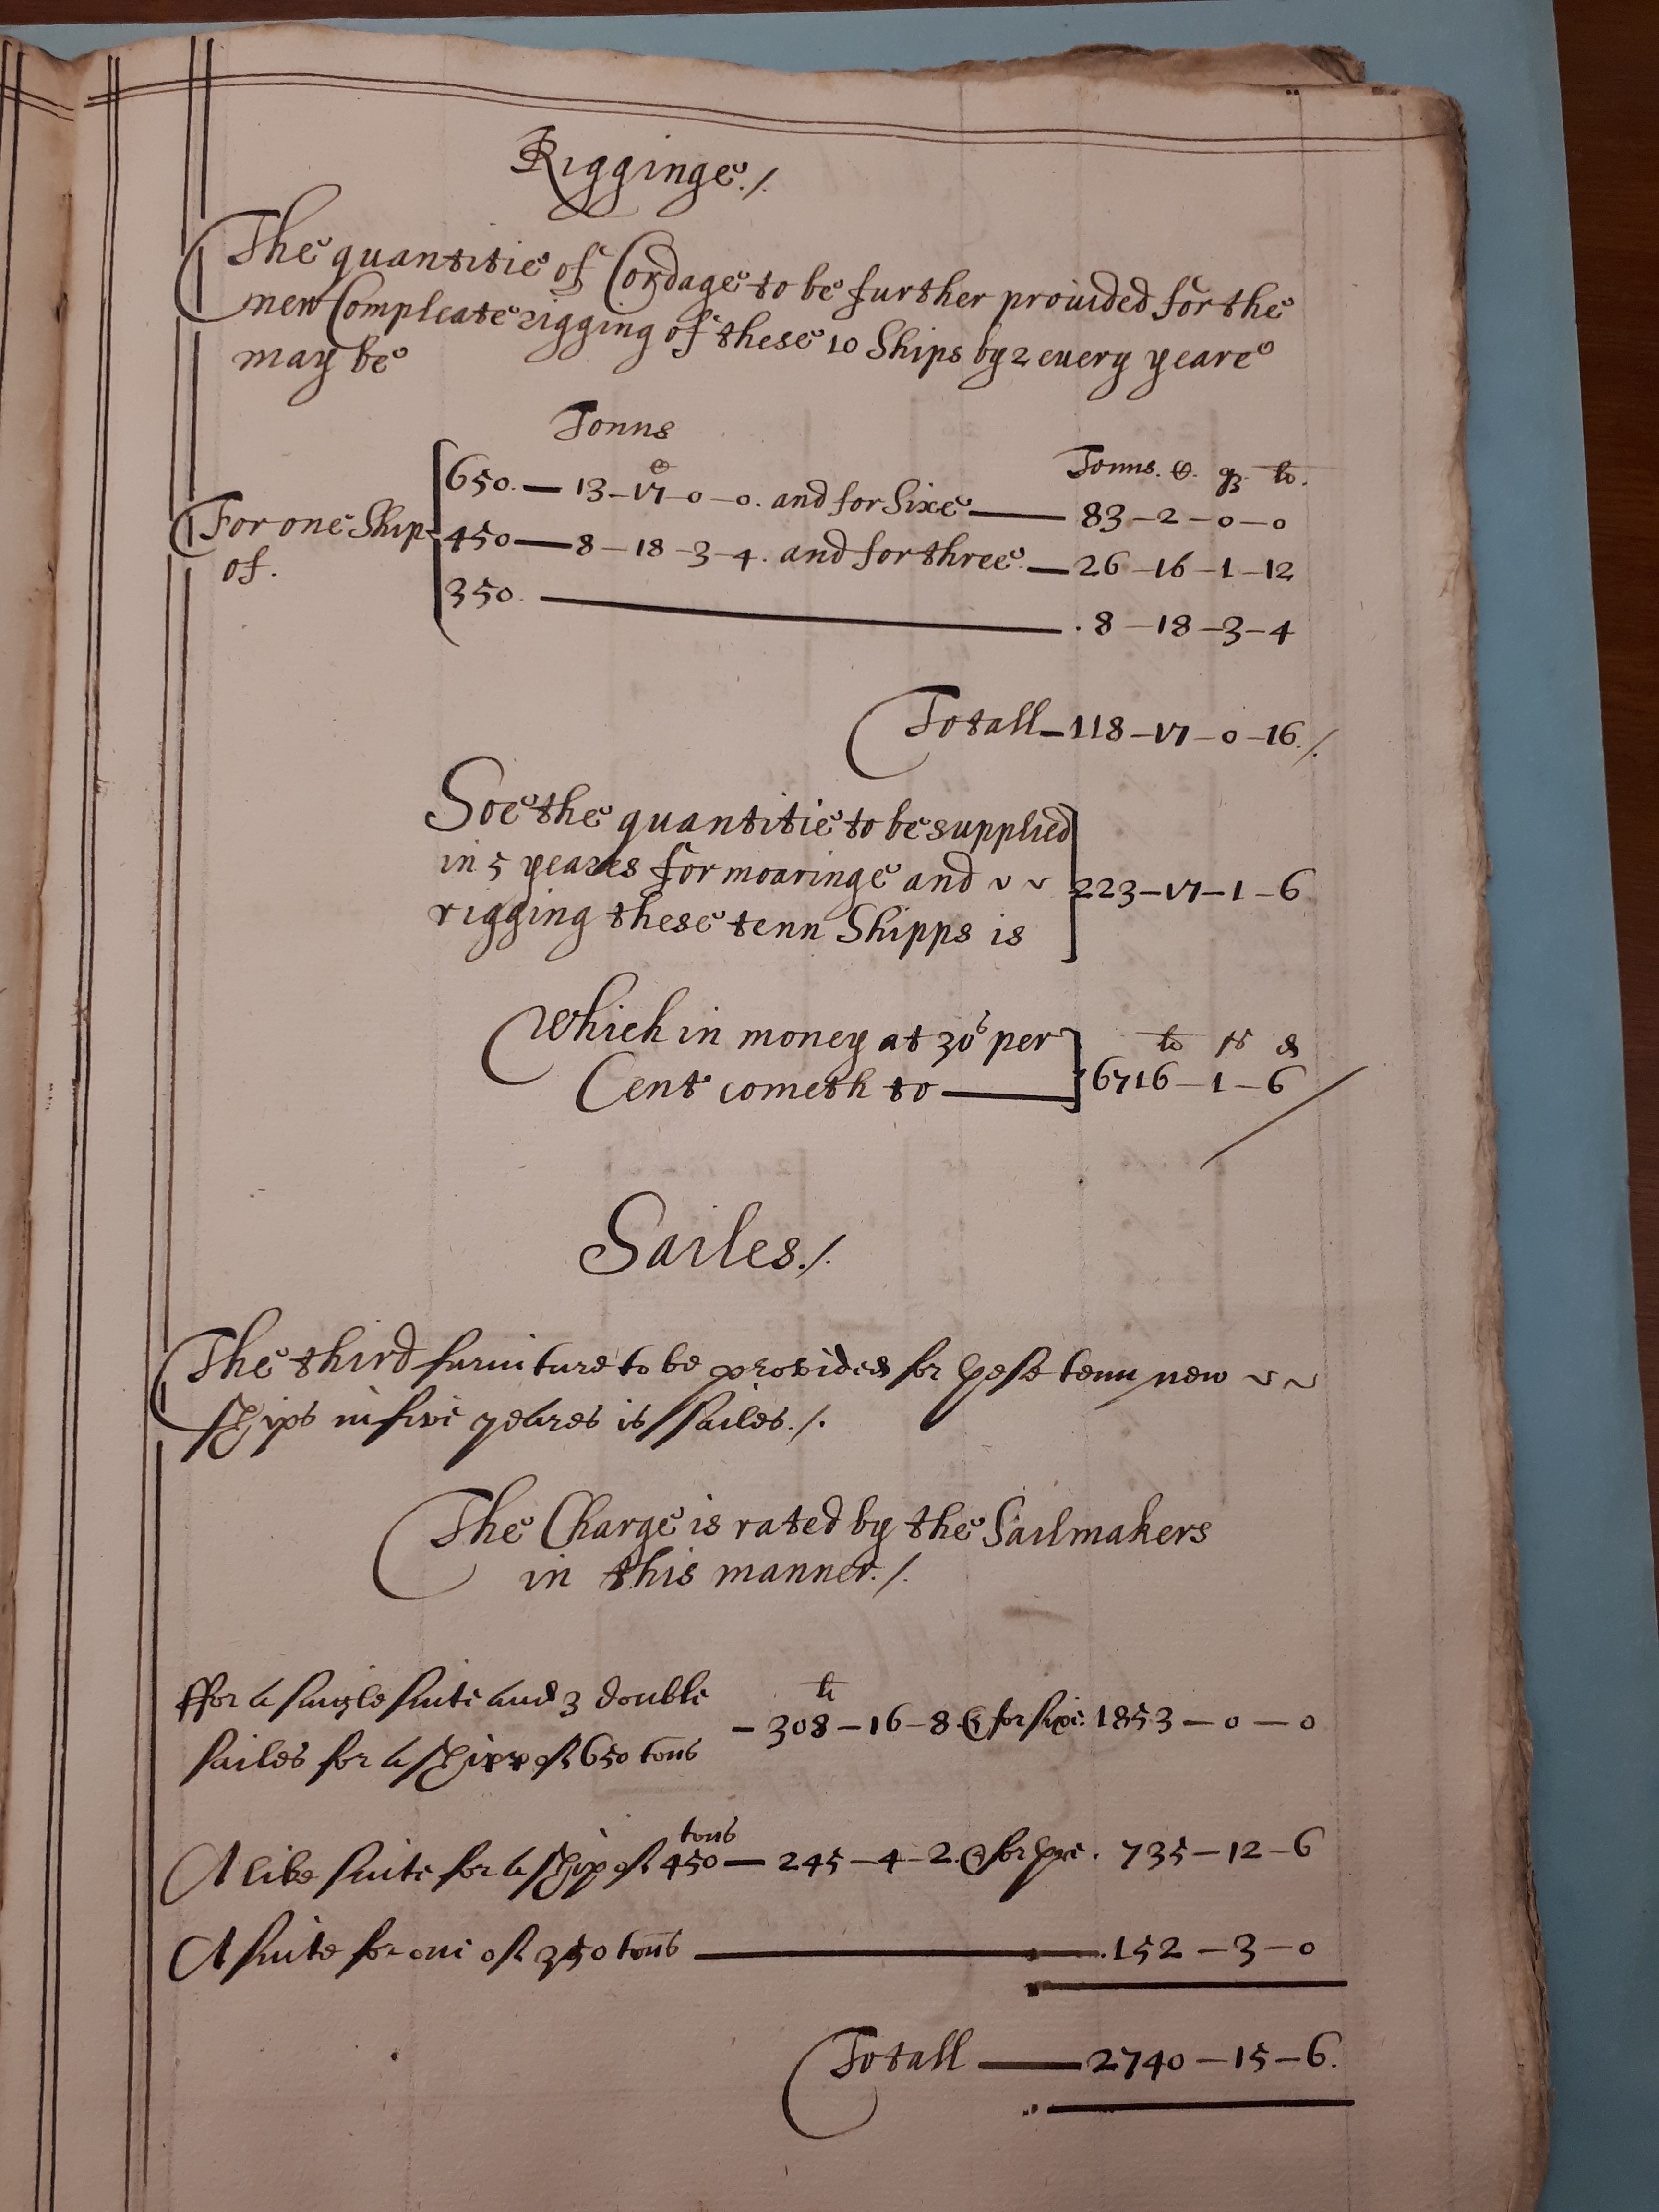 Rigginge./.
The quantitie of Cordage to be further prouided for the
new Compleate rigging of these 10 Ships by 2 euery yeare
may be
Tonns
Tonns. C. qz. lb.
C
650. — 13 – 17 – 0 – 0. and for Sixe — 83 – 2 – 0 – 0
For one Ship
of.
450 — 8 – 18 – 3 – 4. and for three. — 26 – 16 – 1 – 12
350. — . 8 – 18 – 3 – 4
Totall – 118 – 17 – 0 – 16./.
Soe the quantitie to be supplied
in 5 yeares for moaringe and
rigging these tenn Shipps is
223 – 17 – 1 – 6
Which in money at 30s per
Cent cometh to —
lb s d
6716 – 1 – 6
Sailes./.
The third furniture to be provided for these tenn new
ships in five yeares is sailes./.
The Charge is rated by the Sailmakers
in this manner./.
ffor a single suite and 3 double
sailes for a shipp of 650 tons
li
– 308 – 16 – 8. & for sixe. 1853 – 0 – 0
A like suite for a ship of 450 tons — 245 – 4 – 2. & for three. 735 – 12 – 6
A suite for one of 350 tons — . 152 – 3 – 0
Totall — 2740 – 15 – 6.